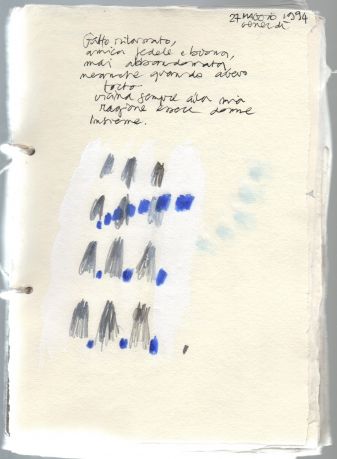 27 MAGGIO 1994
venerdì
Gatto ritornato,
amica fedele e buona,
mai abbandonata,
neanche quando avevo
torto
vicina sempre alla mia
ragione essere donne
insieme.